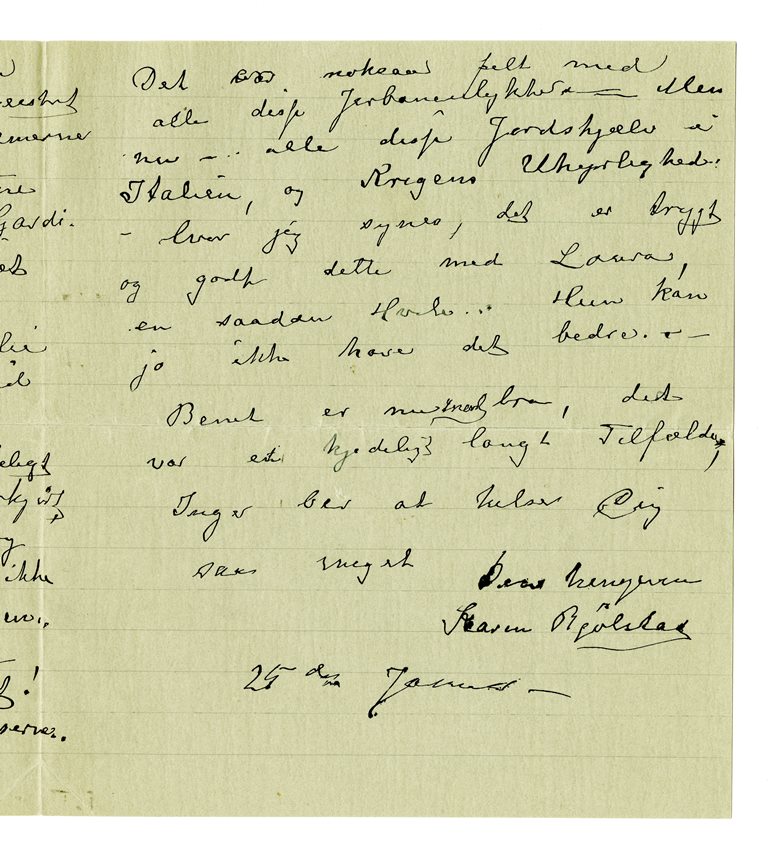 Det var noksaa fælt med
alle disse Jernbaneulykker — Men
nu – alle disse Jordskjælv i
Italien, og Krigens Uhyrligheder
– hvor jeg synes, det er trygt
og godt dette med Laura,
en saadan Hvile... Hun kan
jo ikke have det bedre. –
Benet er nu bra, det
var et kjedeligt langt Tilfælde,
Inger ber at hilse Dig
saa meget Din hengivne
Karen Bjølstad
25 de Januar –
eestnt
merne
Gardi.
lie
eligt
ikke
en.
!
server.